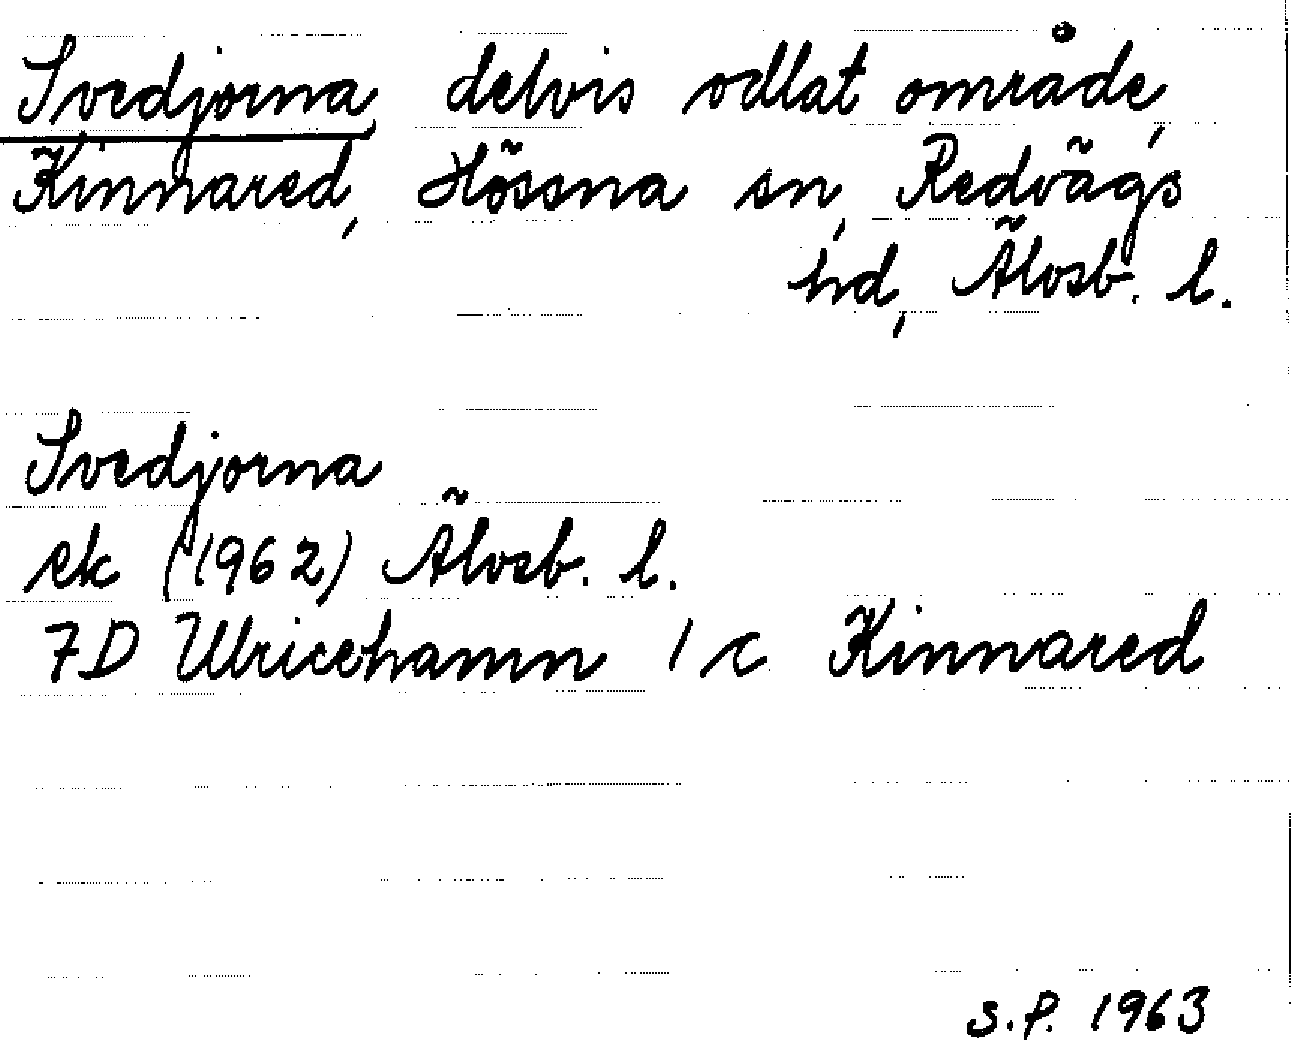 Svedjorna, delvis odlat område,
Kinnared, Hössna sn, Redvägs
hd, Älvsb. l.
Svedjorna
ek (1962) Älvsb. l.
7D Ulricehamn 1 c Kinnared
S.P. 1963